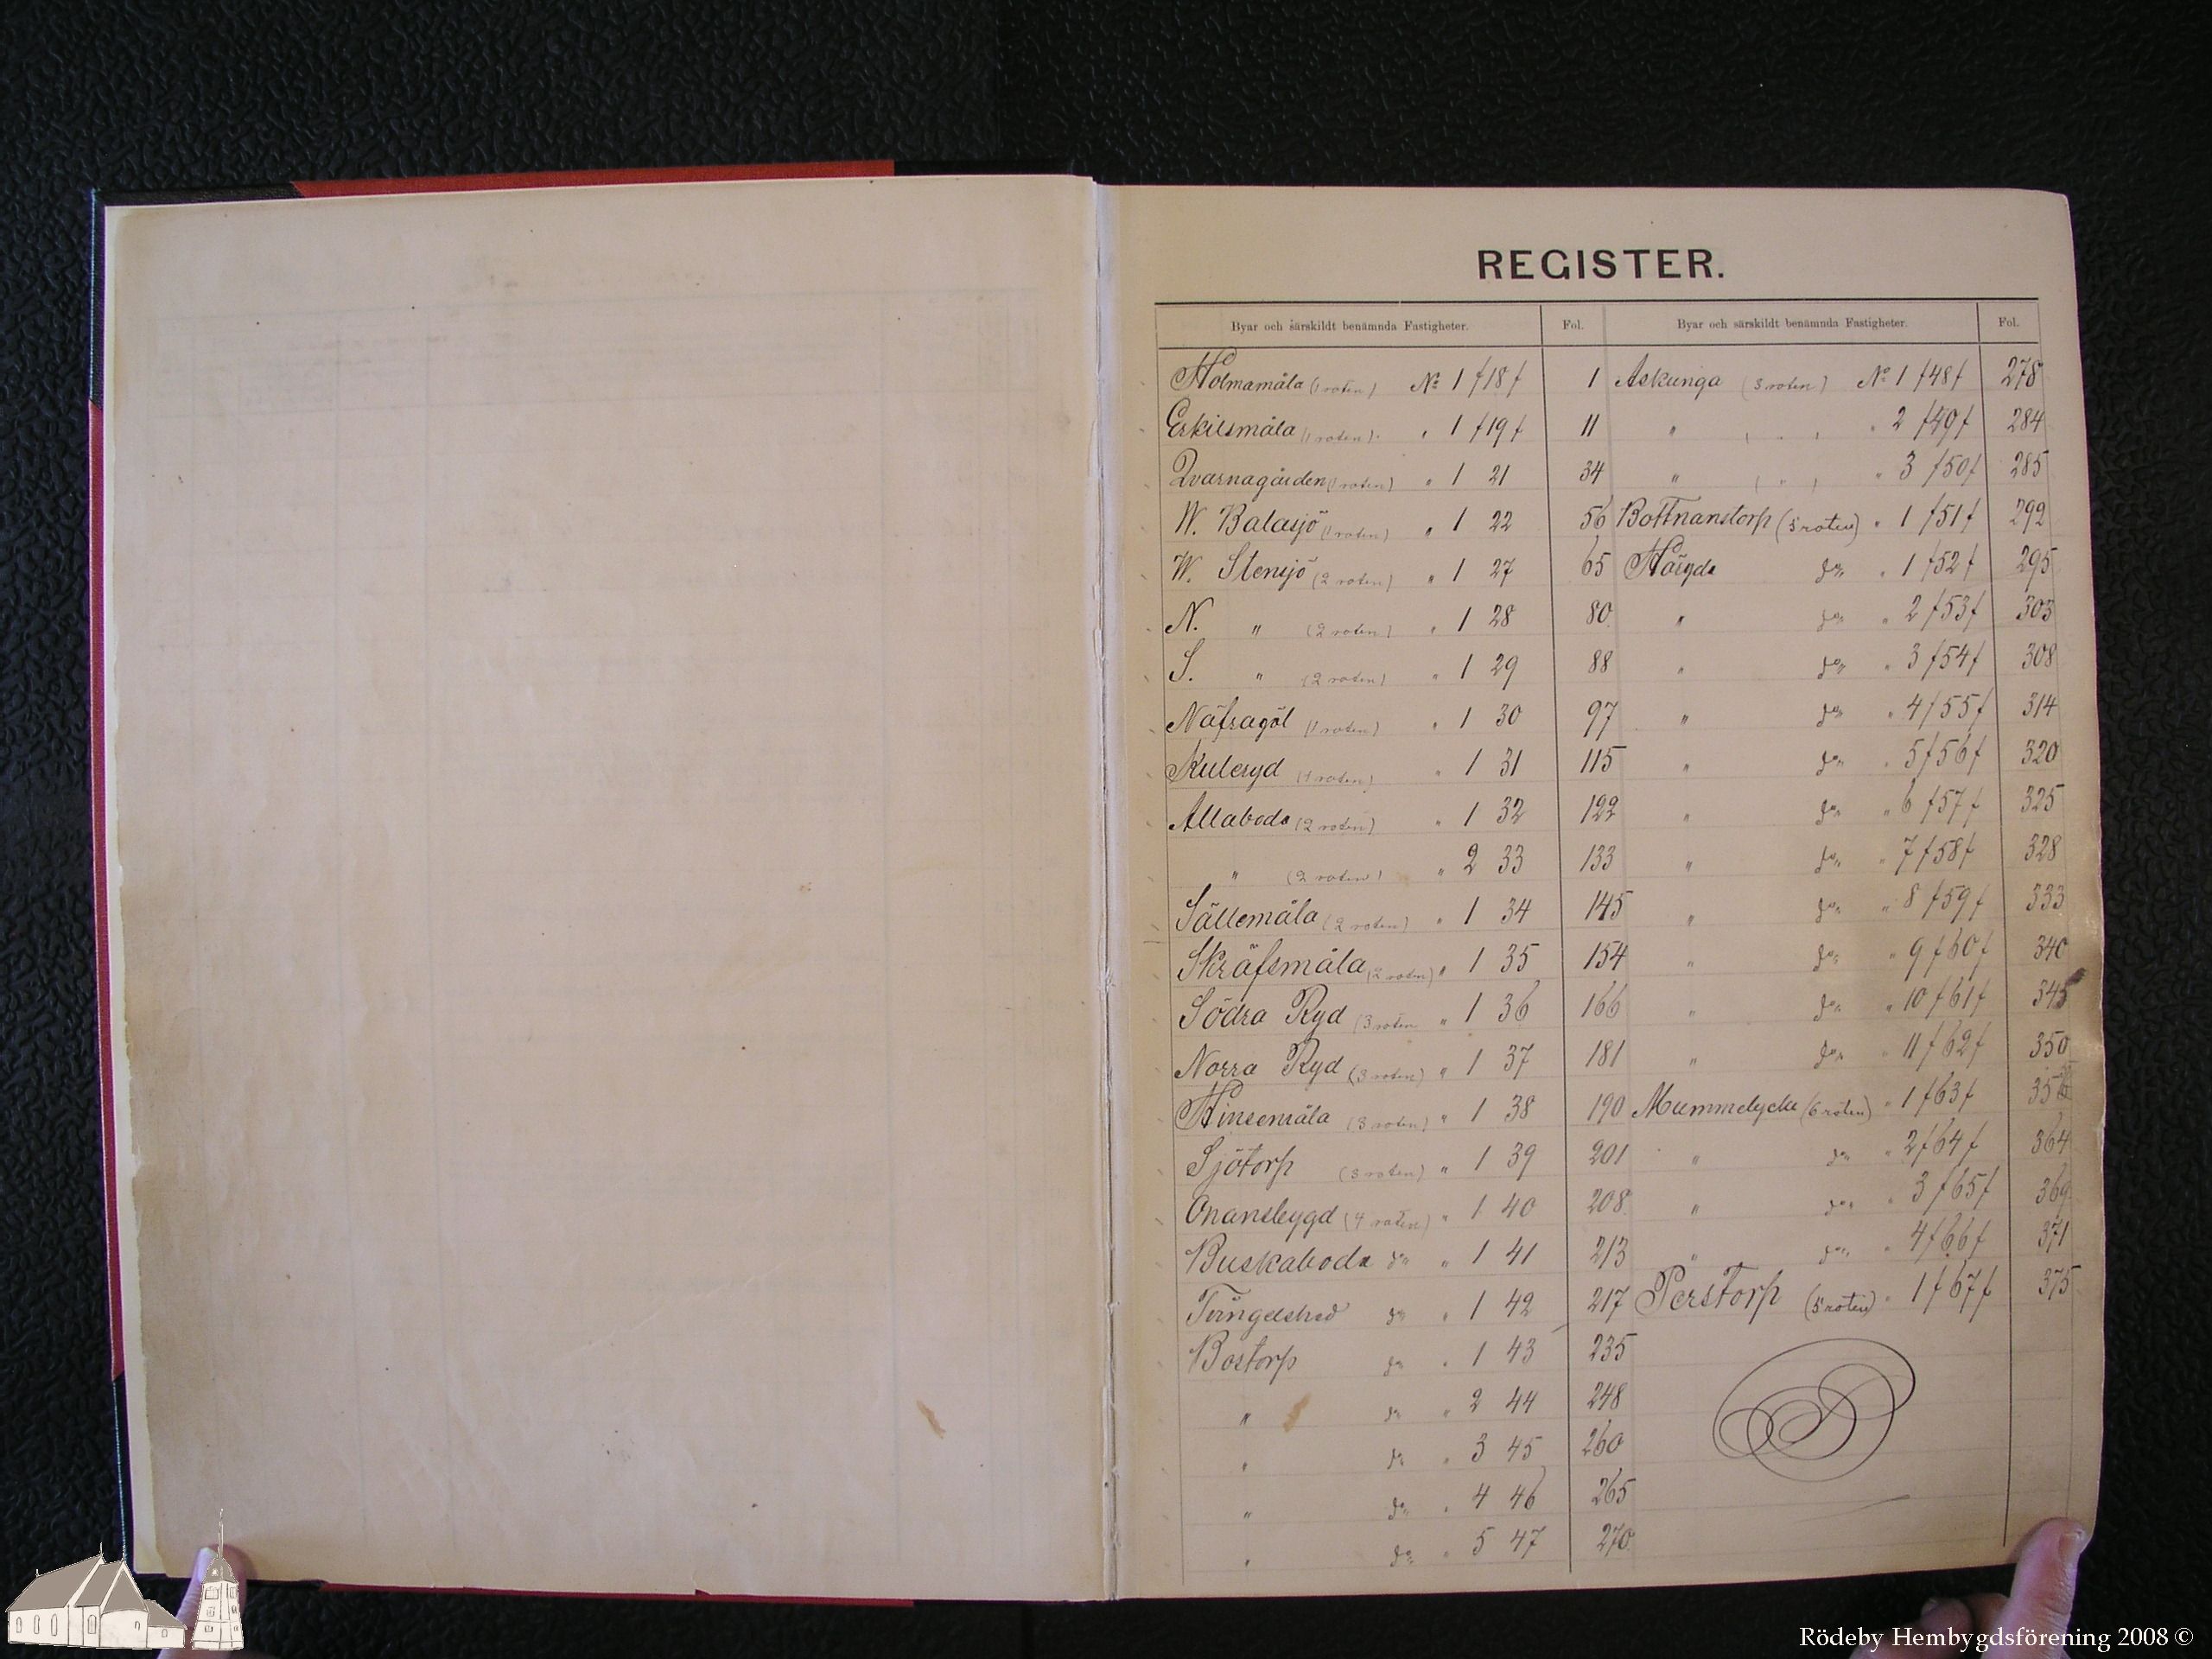 REGISTER.
Byar och särskildt benämnda Fastigheter. Fol.
Holmamåla (1 roten) No 1 /18/ 1
Erkilsmåla (1 roten) " 1 /19/ 11
Qvarnagården (1 roten) " 1 21 34
W. Balasjö (1 roten) " 1 22 56
W. Stensjö (2 roten) " 1 27 65
N. " (2 roten) " 1 28 80
S. " (2 roten) " 1 29 88
Näfragöl (1 roten) " 1 30 97
Kuleryd (1 roten) " 1 31 115
Allaboda (2 roten) " 1 32 122
" (2 roten) " 2 33 133
Sällemåla (2 roten) " 1 34 145
Skräfsmåla (2 roten) " 1 35 154
Södra Ryd (3 roten " 1 36 166
Norra Ryd (3 roten) " 1 37 181
Hinsemåla (3 roten) " 1 38 190
Sjötorp (3 roten) " 1 39 201
Onansbygd (4 roten) " 1 40 208
Buskaboda do " 1 41 213
do " 1 42 217
Bostorp do " 1 43 235
" do " 2 44 248
" do " 3 45 260
" do " 4 46 265
" do " 5 47 270
Byar och särskildt benämnda Fastigheter. Fol.
Askunga (3 roten) No 1 /48/ 278
" ( " ) " 2 /49/ 284
" ( " ) " 3 /50/ 285
Bottnanstorp (5 roten) " 1 /51/ 292
do " 1 /52/ 295
" do " 2 /53/ 303
" do " 3 /54/ 308
" do " 4 /55/ 314
" do " 5 /56/ 320
" do " 6 /57/ 325
" do " 7 /58/ 328
" do " 8 /59/ 333
" do " 9 /60/ 340
" do " 10 /61/ 345
" do " 11 /62/ 350
Mummelycke (6 roten) " 1 /63/
" do " 2 /64/ 364
" do " 3 /65/ 369
" do " 4 /66/ 371
Perstorp (5 roten) " 1 /67/ 375
Rödeby Hembygdsförening 2008 ©